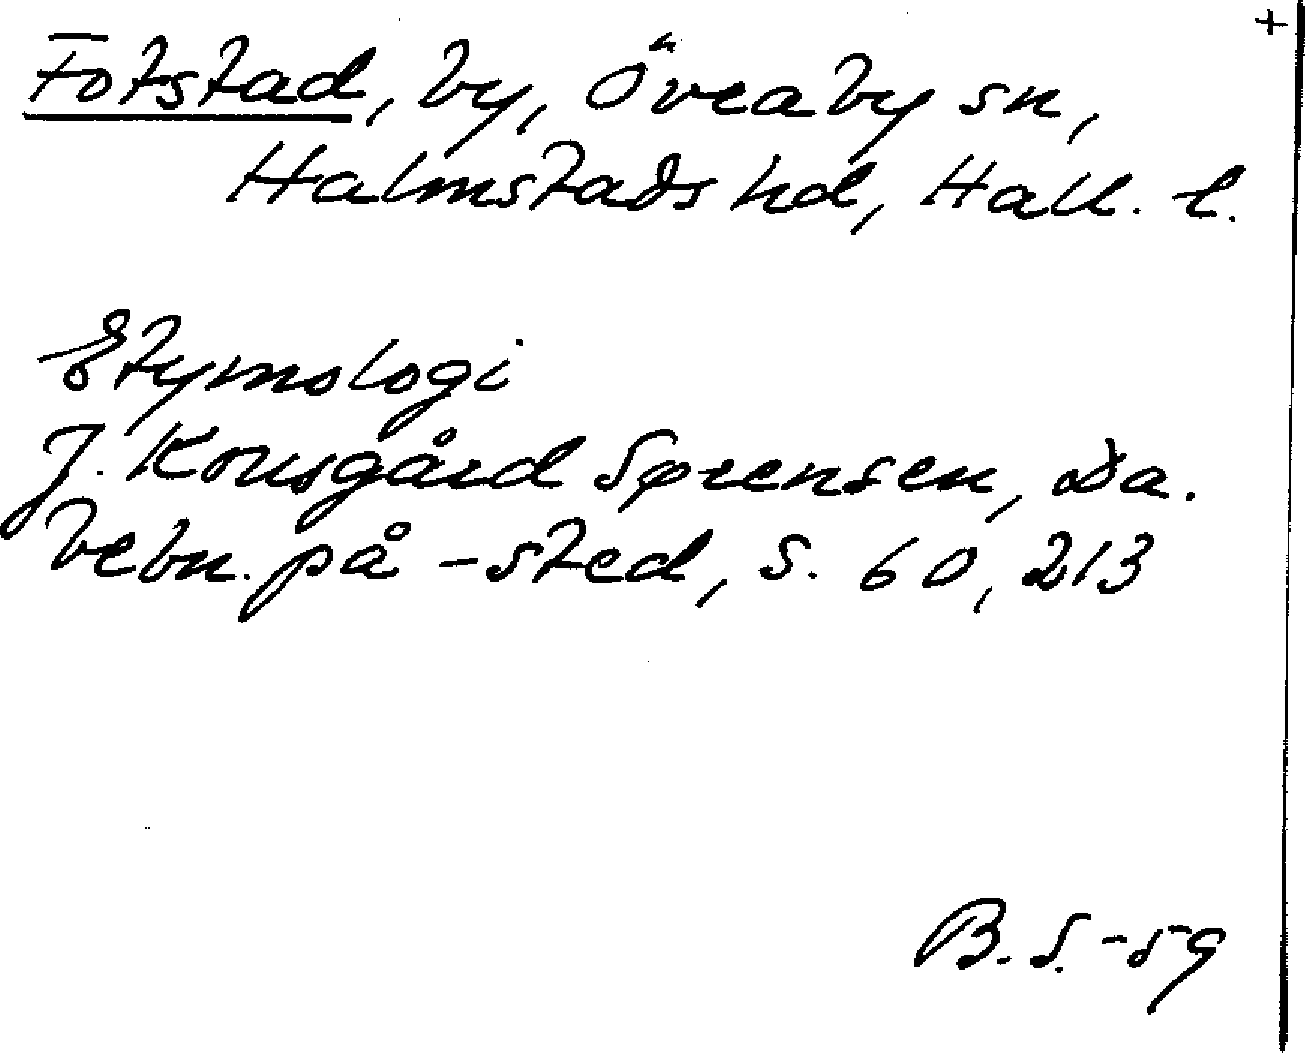 +
Fotstad, by, Övraby sn,
Halmstads hd, Hall. l.
Etymologi
J. Kousgård Sørensen, Da.
bebn. på -sted, s. 60, 213
B. S. -59